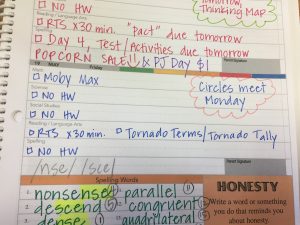 NO HW
tomorrow,
Thinking Map
Reading / Language Arts
RTS x30 min. "Pact" due tomorrow
Spelling
Day 4, Test/Activities due tomorrow
POPCORN SALE!! & PJ DAY $1
Parent Signature
Friday
Math
Moby Max
Circles meet
Monday
Science
NO HW
Social Studies
NO HW
Reading / Language Arts
RTS x30 min. Tornado Terms/Tornado Tally
Spelling
NO HW
Parent Signature
/nse/ /sce/
Spelling Words
1. nonsense parallel
descend congruent
dense quadrilateral
HONESTY
Write a word or something
you do that reminds you
about honesty.